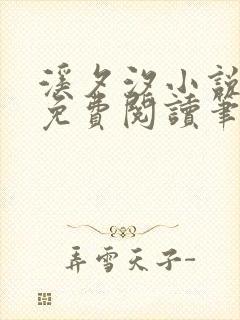 溪夕汐小說
免費閱讀筆
弄雪天子-